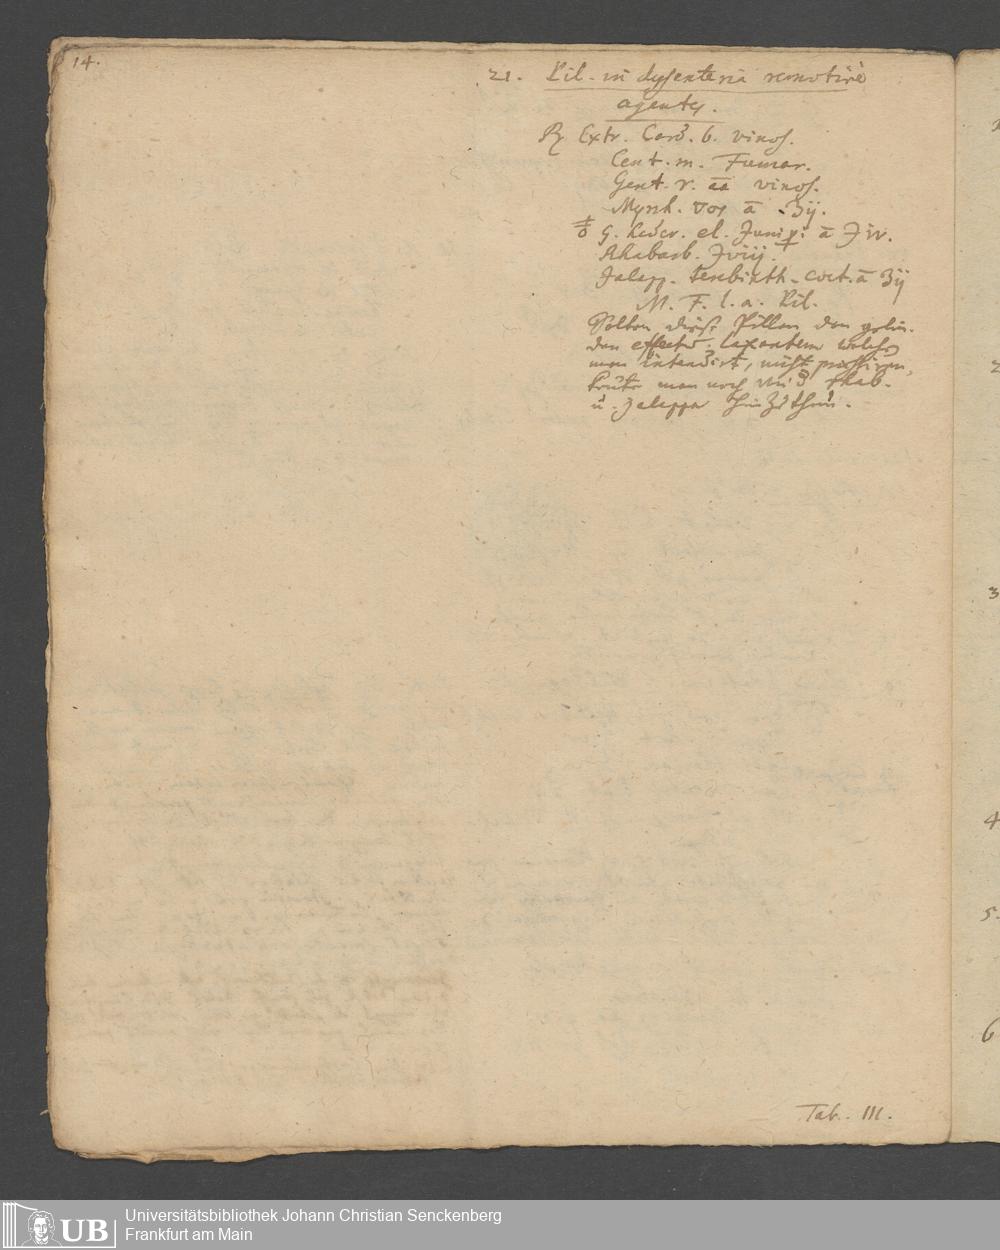 14.
21. Pil. in dysenteria remotivè
agentes.
℞ Extr. Card. b. vinos.
Cent. m. Fumar.
Gent. r. āā vinos.
Myrrh. ā ʒij.
G. heder. el. Junip: ā ℈iv.
Rhabarb. ℈viij.
Jalapp. terebinth. coct. ā ʒij
M. F. l. a. Pil.
Solten diese Pillen den gelin-
den effectum laxantem welchen
man intendirt, nicht
könte man noch rhab.
u. Jalappa hinzu thun.
Tab. III.
UB Universitätsbibliothek Johann Christian Senckenberg
Frankfurt am Main